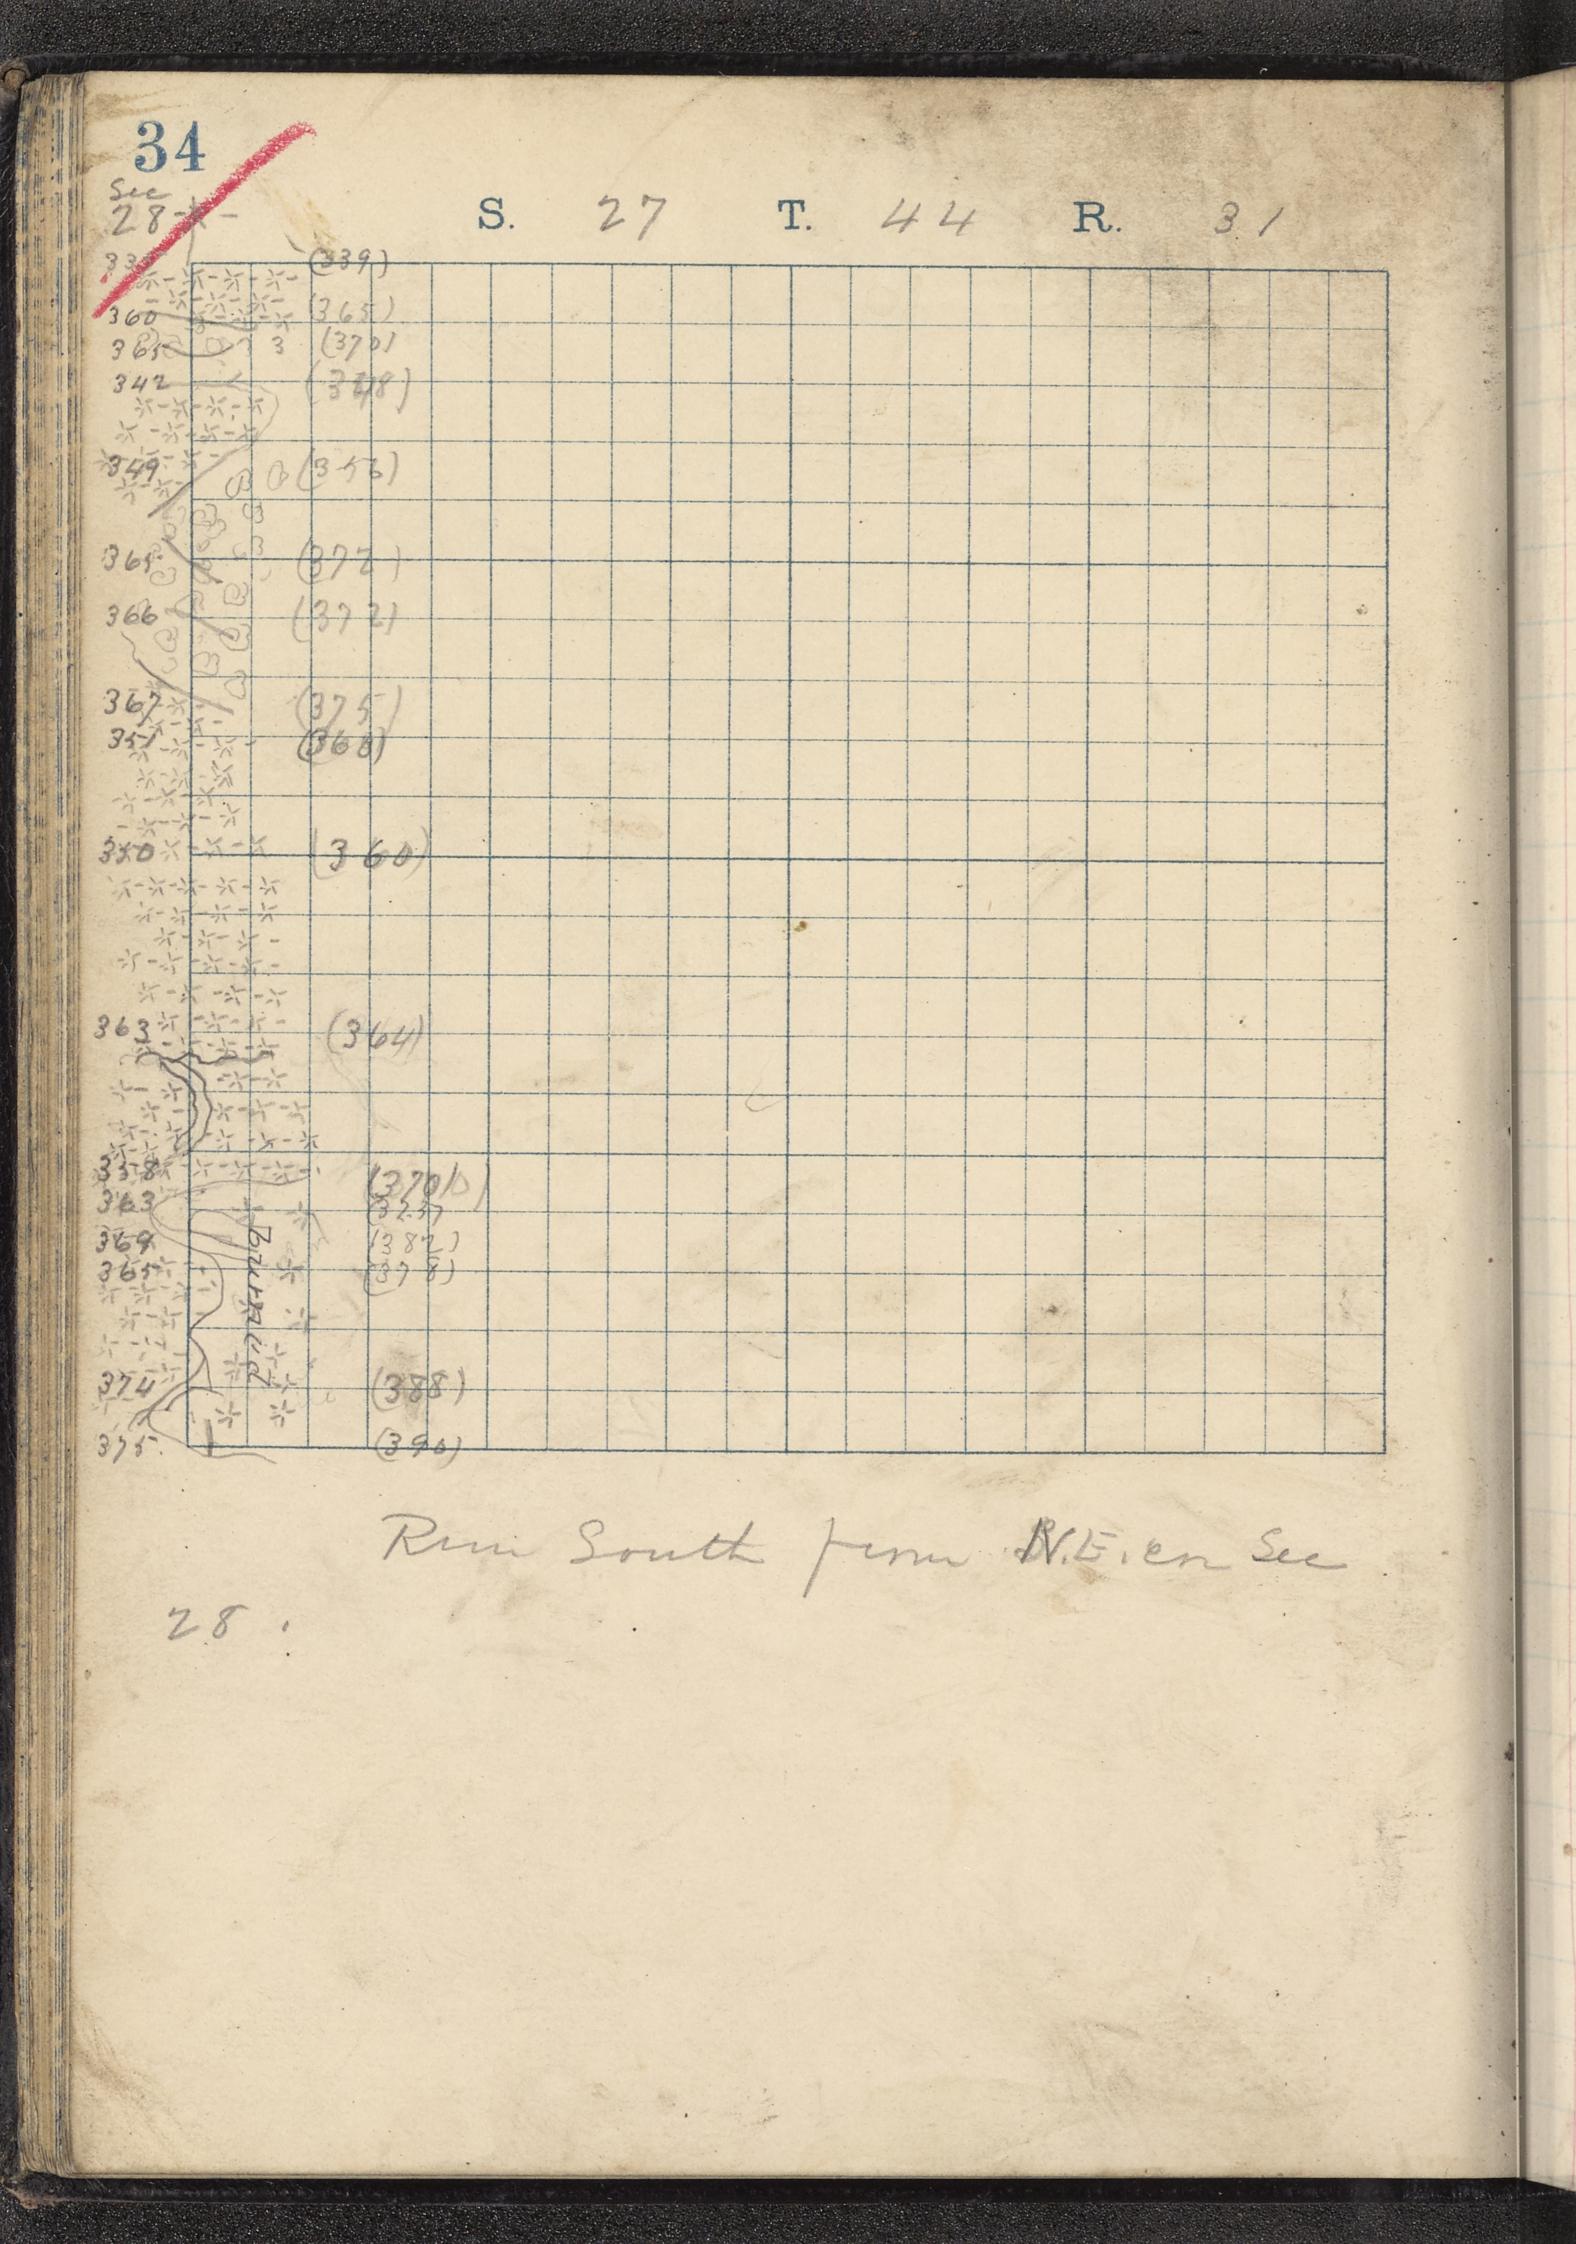 34
Sec
28
S. 27 T. 44 R. 31
(339)
360 (365)
365 3 (370)
342
349 (356)
365 (372)
366 (372)
367 (375)
351 (360)
350 (360)
363 (364)
358 (370)
363
369 (382)
365 (378)
Burned
374 (388)
375 (390)
Run South from N.E. cn Sec
28.